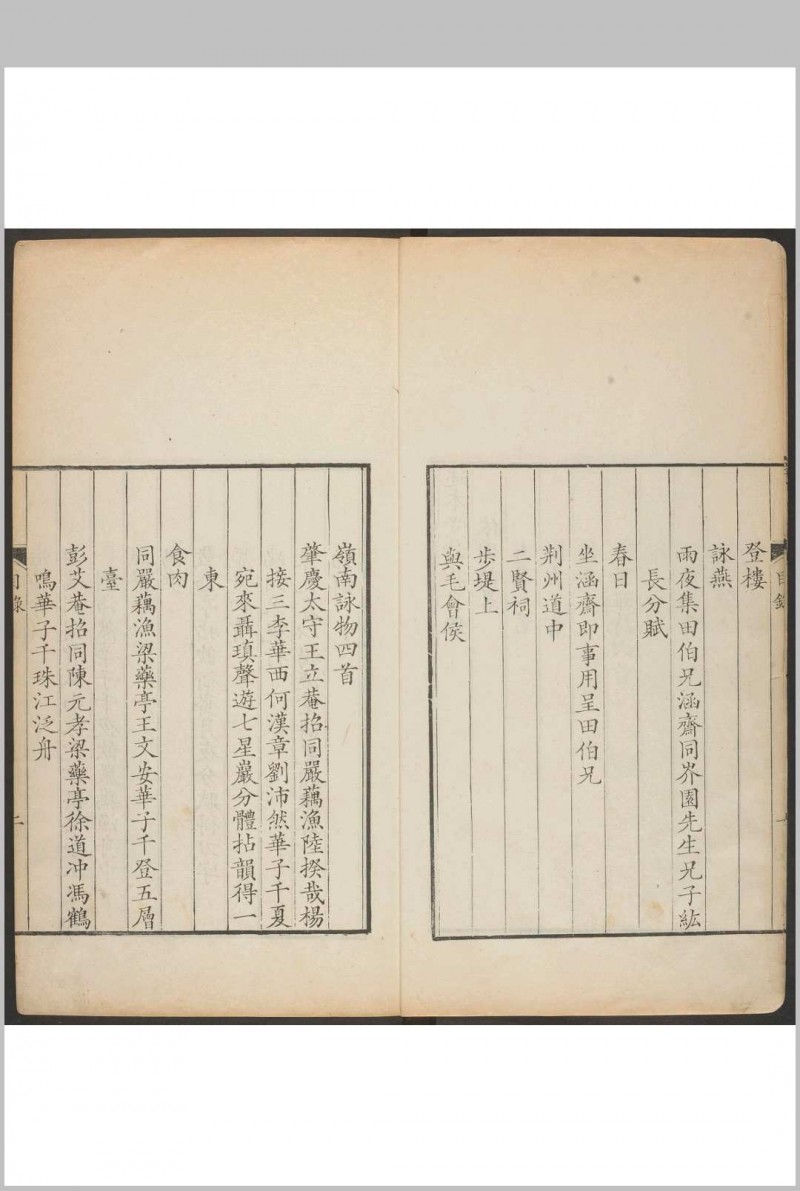 登樓
詠燕
雨夜集田伯兄涵齋同岕園先生兄子紘
長分賦
春日
坐涵齋即事用呈田伯兄
荆州道中
二賢祠
步堤上
與毛會侯
嶺南詠物四首
肇慶太守王立菴招同嚴藕漁陸揆哉楊
接三李華西何漢章劉沛然華子千夏
宛來聶瑱聲遊七星巖分體拈韻得一
東
食肉
同嚴藕漁梁藥亭王文安華子千登五層
臺
彭艾菴招同陳元孝梁藥亭徐道冲馮鶴
鳴華子千珠江泛舟
目錄
二